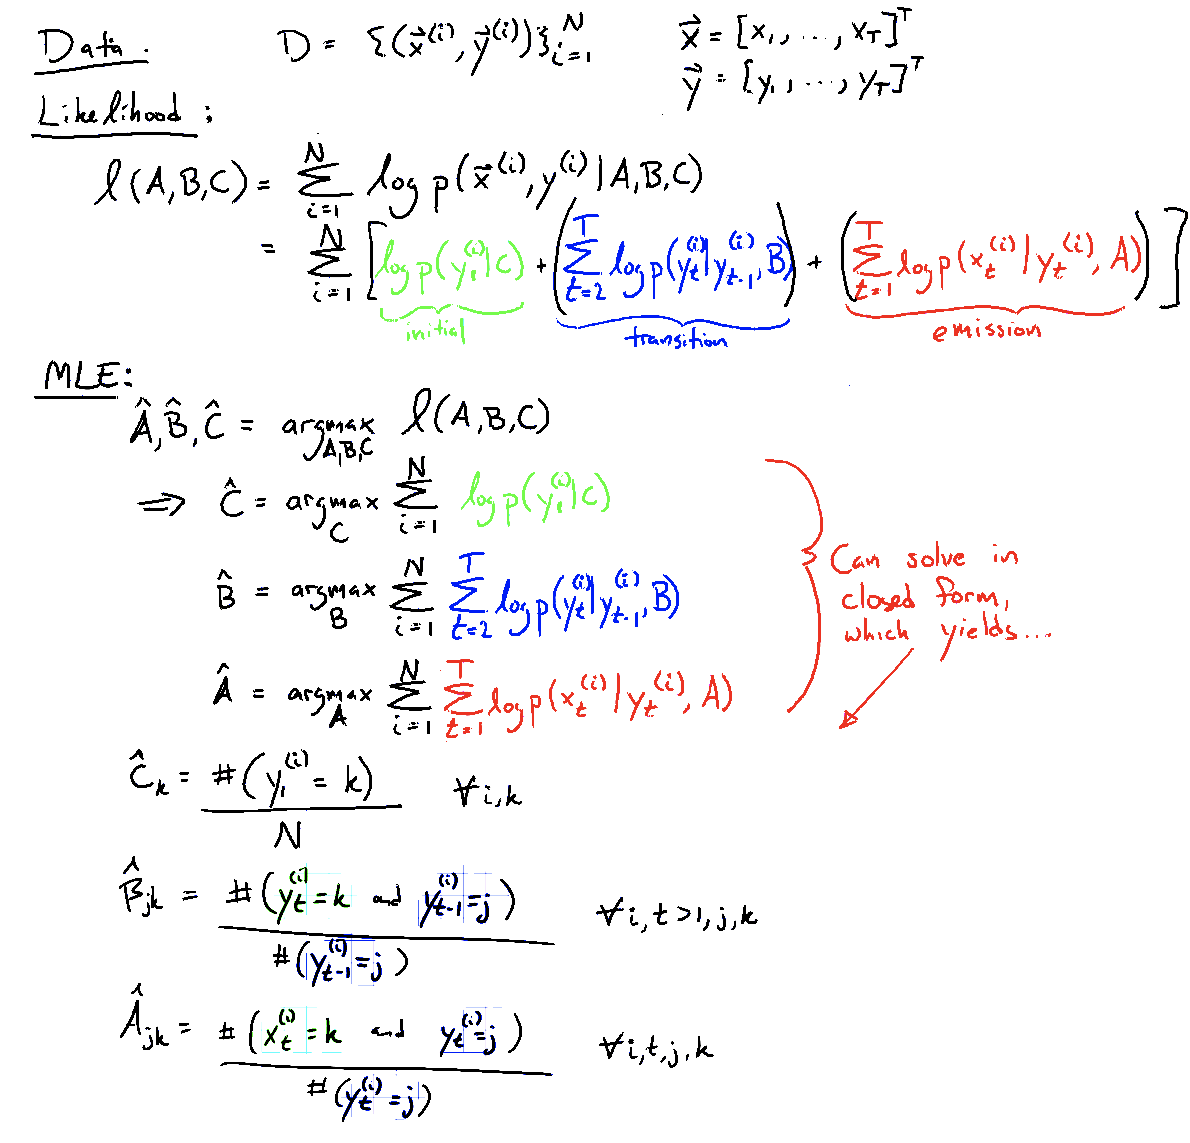 Data. D = {(x⃗^(i), y⃗^(i))}_{i=1}^N x⃗ = [x₁, ..., x_T]^T
y⃗ = [y₁, ..., y_T]^T
Likelihood:
ℓ(A,B,C) = Σ_{i=1}^N log p(x⃗^(i), y^(i) | A,B,C)
= Σ_{i=1}^N [log p(y₁^(i)|C) + (Σ_{t=2}^T log p(y_t^(i)|y_{t-1}^(i), B)) + (Σ_{t=1}^T log p(x_t^(i)|y_t^(i), A))]
initial transition emission
MLE:
Â, B̂, Ĉ = argmax_{A,B,C} ℓ(A,B,C)
⇒ Ĉ = argmax_C Σ_{i=1}^N log p(y₁^(i)|C)
B̂ = argmax_B Σ_{i=1}^N Σ_{t=2}^T log p(y_t^(i)|y_{t-1}^(i), B)
Â = argmax_A Σ_{i=1}^N Σ_{t=1}^T log p(x_t^(i)|y_t^(i), A)
Can solve in
closed form,
which yields...
Ĉ_k = #(y₁^(i) = k) / N ∀i,k
B̂_jk = #(y_t^(i) = k and y_{t-1}^(i) = j) / #(y_{t-1}^(i) = j) ∀i,t>1,j,k
Â_jk = #(x_t^(i) = k and y_t^(i) = j) / #(y_t^(i) = j) ∀i,t,j,k